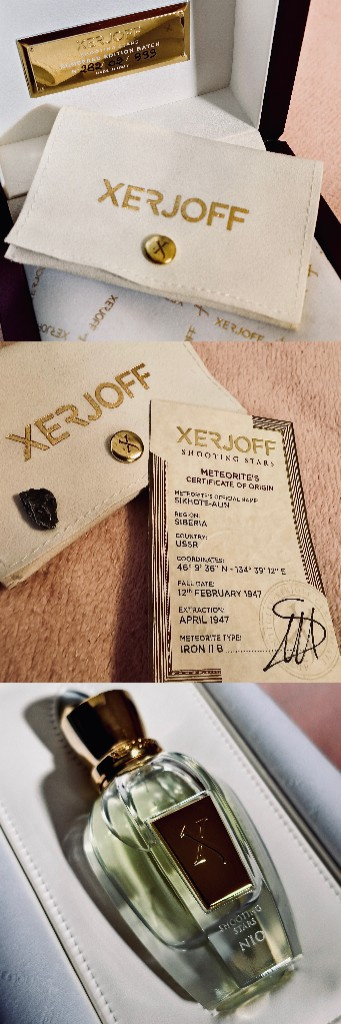 XERJOFF
NUMBERED EDITION BATCH
XERJOFF
XERJOFF
XERJOFF
XERJOFF
SHOOTING STARS
METEORITE'S
CERTIFICATE OF ORIGIN
METEORITE'S OFFICIAL NAME
SIKHOTE-ALIN
REGION:
SIBERIA
COUNTRY:
USSR
COORDINATES:
46° 9' 36" N - 134° 39' 12" E
FALL DATE:
12th FEBRUARY 1947
EXTRACTION:
APRIL 1947
METEORITE TYPE:
IRON II B
SHOOTING
STARS
N10